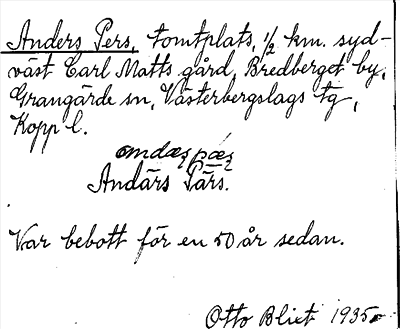 Anders Pers, tomtplats, ½ km. syd-
väst Carl Matts gård, Bredberget by,
Grangärde sn, Västerbergslags tg,
Kopp l.
Andärs Pärs.
Var bebott för en 50 år sedan.
Otto Blixt 1935.